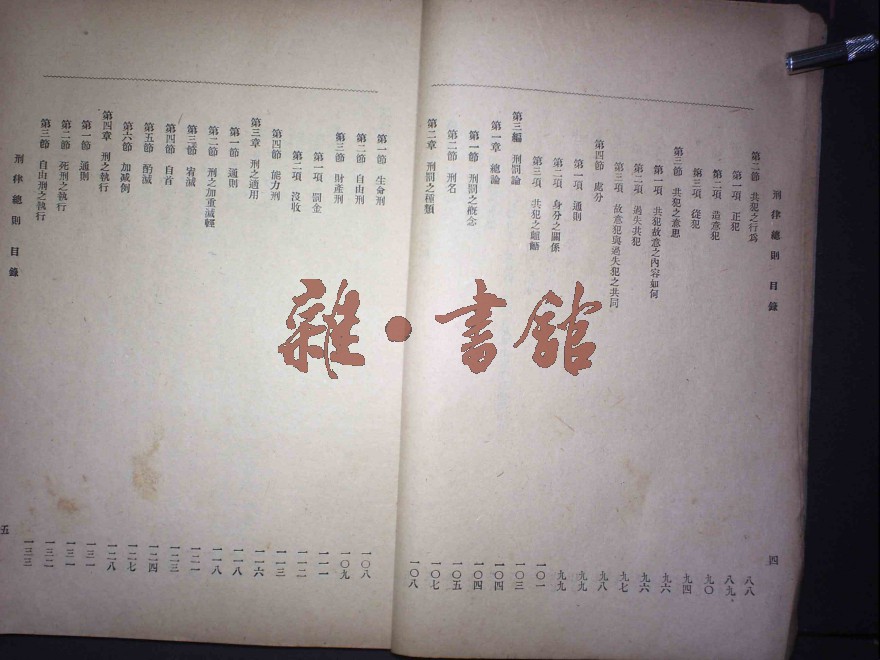 刑律總則 目錄 四
第二節 共犯之行爲 八八
第一項 正犯 八九
第二項 造意犯 九〇
第三項 從犯 九四
第三節 共犯之意思 九六
第一項 共犯故意之內容如何 九六
第二項 過失共犯 九七
第三項 故意犯與過失犯之共同 九八
第四節 處分 九九
第一項 通則 九九
第二項 身分之關係 一〇一
第三項 共犯之齟齬 一〇三
第三編 刑罰論 一〇四
第一章 總論 一〇四
第一節 刑罰之概念 一〇五
第二節 刑名 一〇七
第二章 刑罰之種類 一〇八
第一節 生命刑 一〇八
第二節 自由刑 一〇九
第三節 財產刑 一一一
第一項 罰金 一一二
第二項 沒收 一一三
第四節 能力刑 一一六
第三章 刑之適用 一一八
第一節 通則 一一八
第二節 刑之加重減輕 一二一
第三節 宥減 一二三
第四節 自首 一二四
第五節 酌減 一二七
第六節 加減例 一二八
第四章 刑之執行 一三一
第一節 通則 一三一
第二節 死刑之執行 一三二
第三節 自由刑之執行 一三三
刑律總則 目錄 五
雜·書館